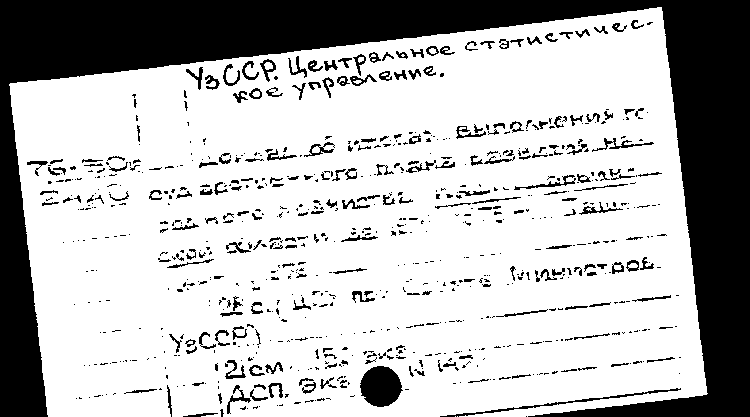 УзССР. Центральное статистичес-
кое управление.
76-30
2440
Доклад об итогах выполнения го
сударственного плана развития на-
родного хозяйства
ской области за Таш-
28 с. (ЦСУ при Совете Министров
УзССР)
21см 150 экз
ДСП. экз N 147